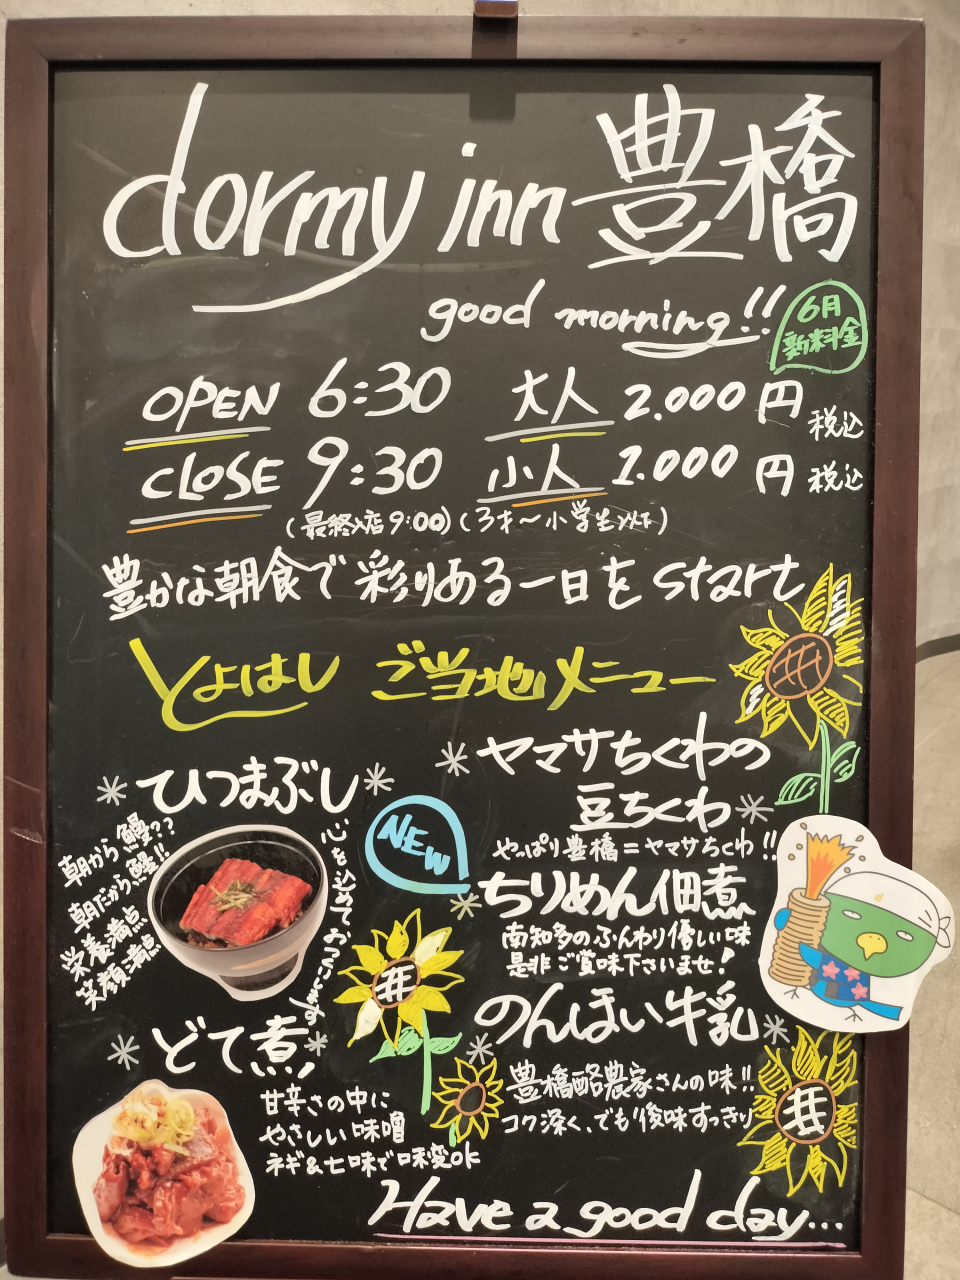 dormy inn 豊橋
good morning!!
6月
新料金
OPEN 6:30
大人 2.000円 税込
CLOSE 9:30
小人 1.000円 税込
(最終入店9:00)(3才〜小学生以下)
豊かな朝食で彩りある一日をstart
とよはし ご当地メニュー
ひつまぶし
朝から鰻??
朝だから鰻!!
栄養満点
笑顔満点
心を込めておこします
NEW
どて煮
甘辛さの中に
やさしい味噌
ネギ&七味で味変OK
ヤマサちくわの
豆ちくわ
やっぱり豊橋=ヤマサちくわ!!
ちりめん佃煮
南知多のふんわり優しい味
是非ご賞味下さいませ!
のんほい牛乳
豊橋酪農家さんの味!!
コク深く、でも後味すっきり
Have a good day...